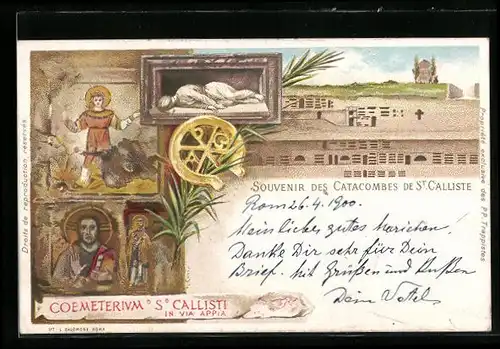 Droits de reproduction réservés
Propriété exclusive des PP. Trappistes
SOUVENIR DES CATACOMBES DE ST. CALLISTE
Rom 26.4.1900.
Mein liebes gutes
Danke Dir sehr für Dein
Brief. mit Grüßen und Küssen
Dein
COEMETERIVM S CALLISTI
IN VIA APPIA
ROMA